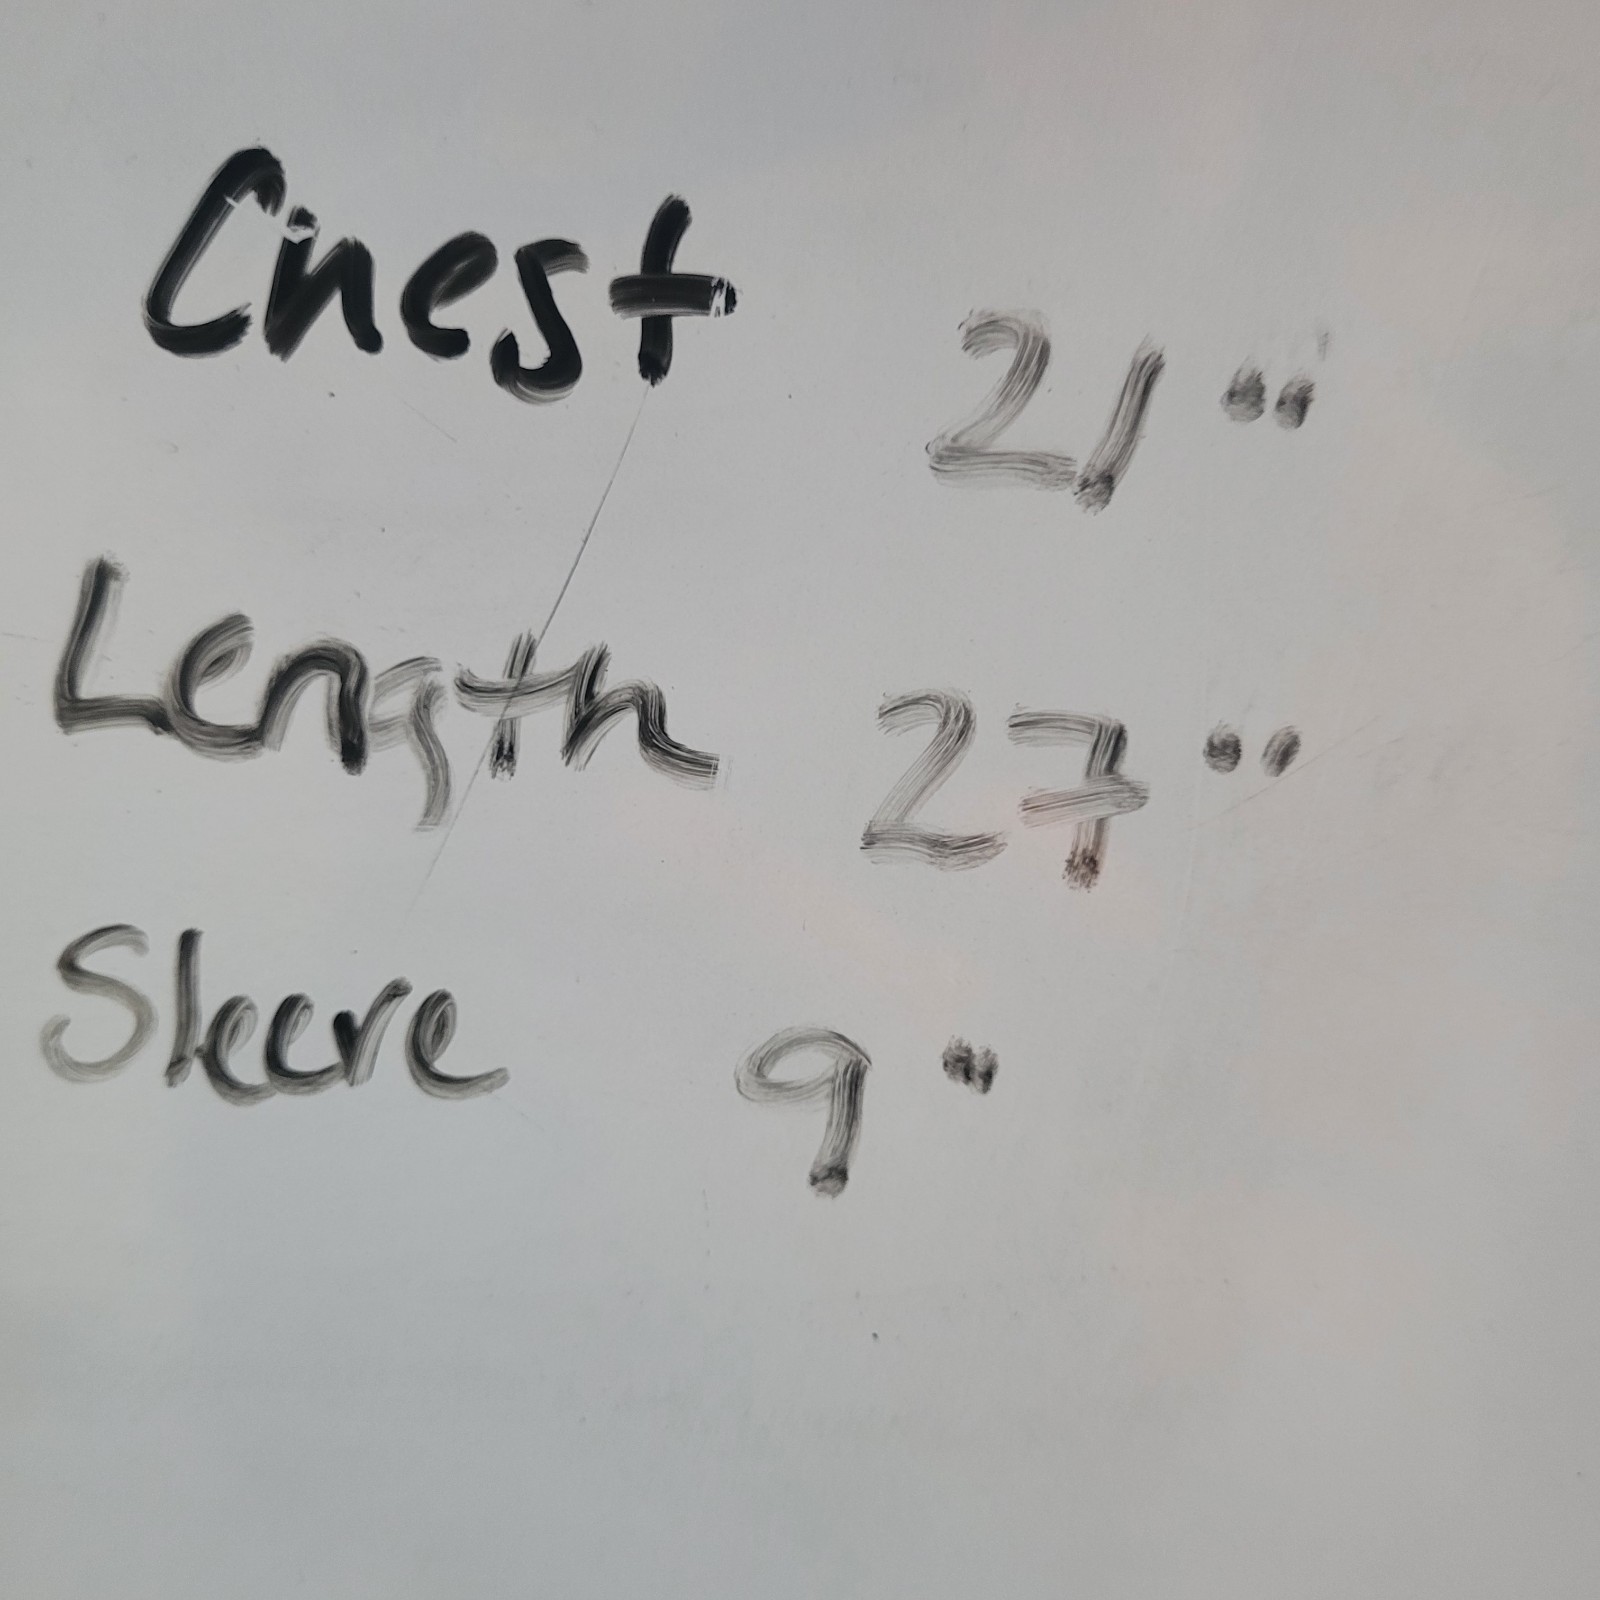 Chest 21"
Length 27"
Sleeve 9"